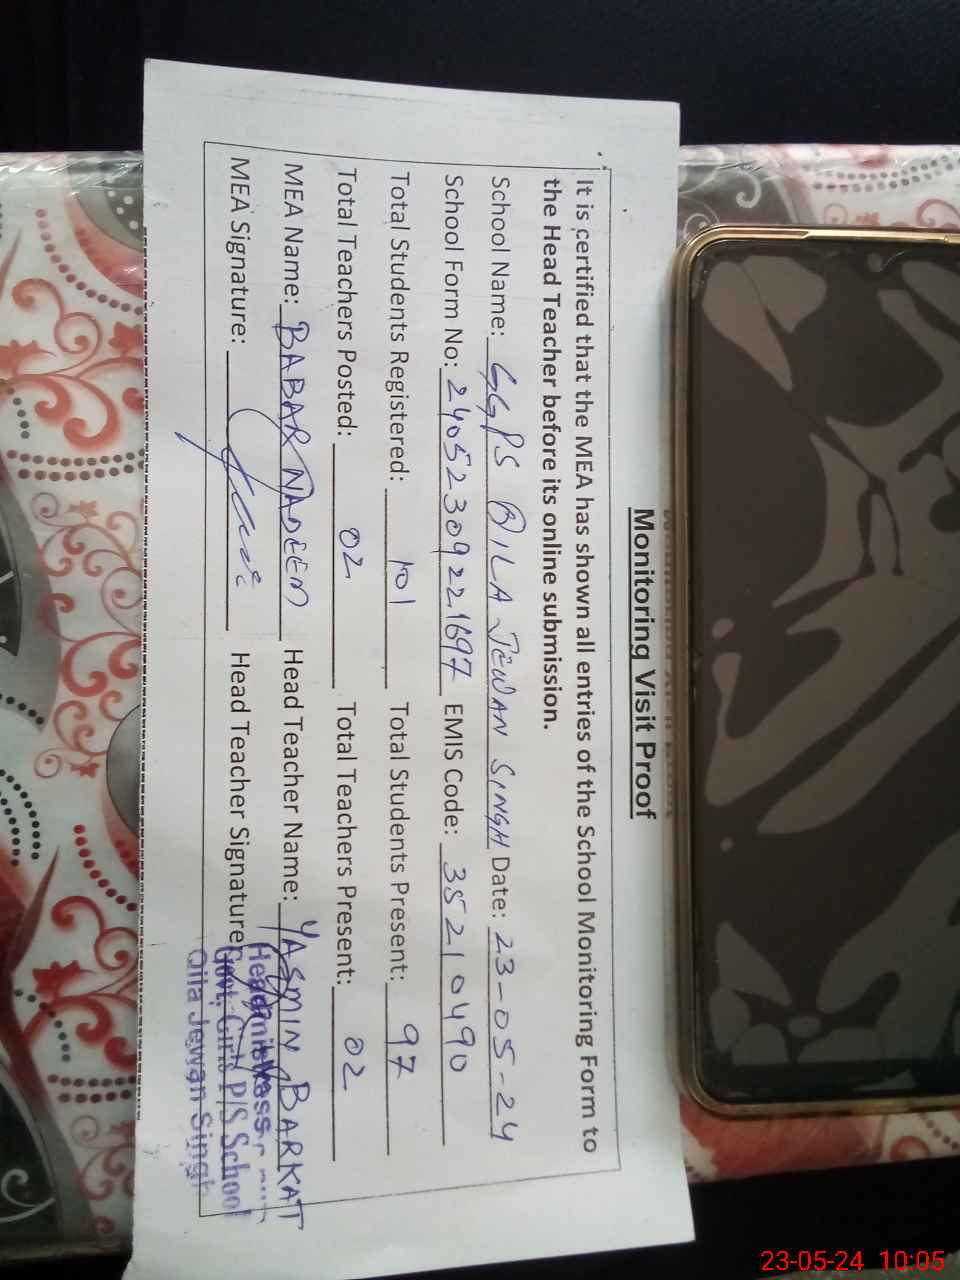 Monitoring Visit Proof
It is certified that the MEA has shown all entries of the School Monitoring Form to
the Head Teacher before its online submission.
School Name: GGPS QILA JEWAN SINGH Date: 23-05-24
School Form No: 24052309221697 EMIS Code: 35210490
Total Students Registered: 101 Total Students Present: 97
Total Teachers Posted: 02 Total Teachers Present: 02
MEA Name: BABAR NADEEM Head Teacher Name: YASMIN BARKAT
MEA Signature: Head Teacher Signature
Headmistress
Govt. Girls P/S School
Qila Jewan Singh
23-05-24 10:05